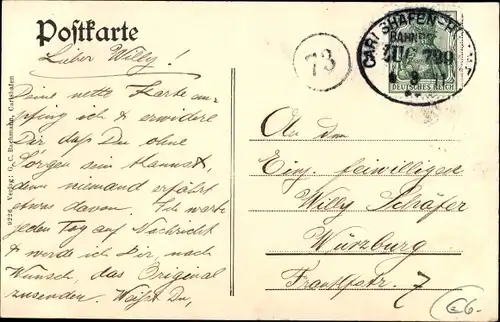 Postkarte
CARLSHAFEN-H
BAHNPOST
ZUG 799
DEUTSCHES REICH
73
Lieber Willy!
Deine nette Karte em-
pfing ich & erwidere
Dir daß Du ohne
Sorgen sein kannst,
denn niemand erfährt
etwas davon. Ich warte
jeden Tag auf Nachricht
& werde ich Dir, nach
Wunsch, das Original
zusenden. Weißt Du,
An den
Einj. freiwilligen
Willy Schäfer
Würzburg
Frankfstr. 7
9226 Verlag: G. C. Bachmann, Carlshafen